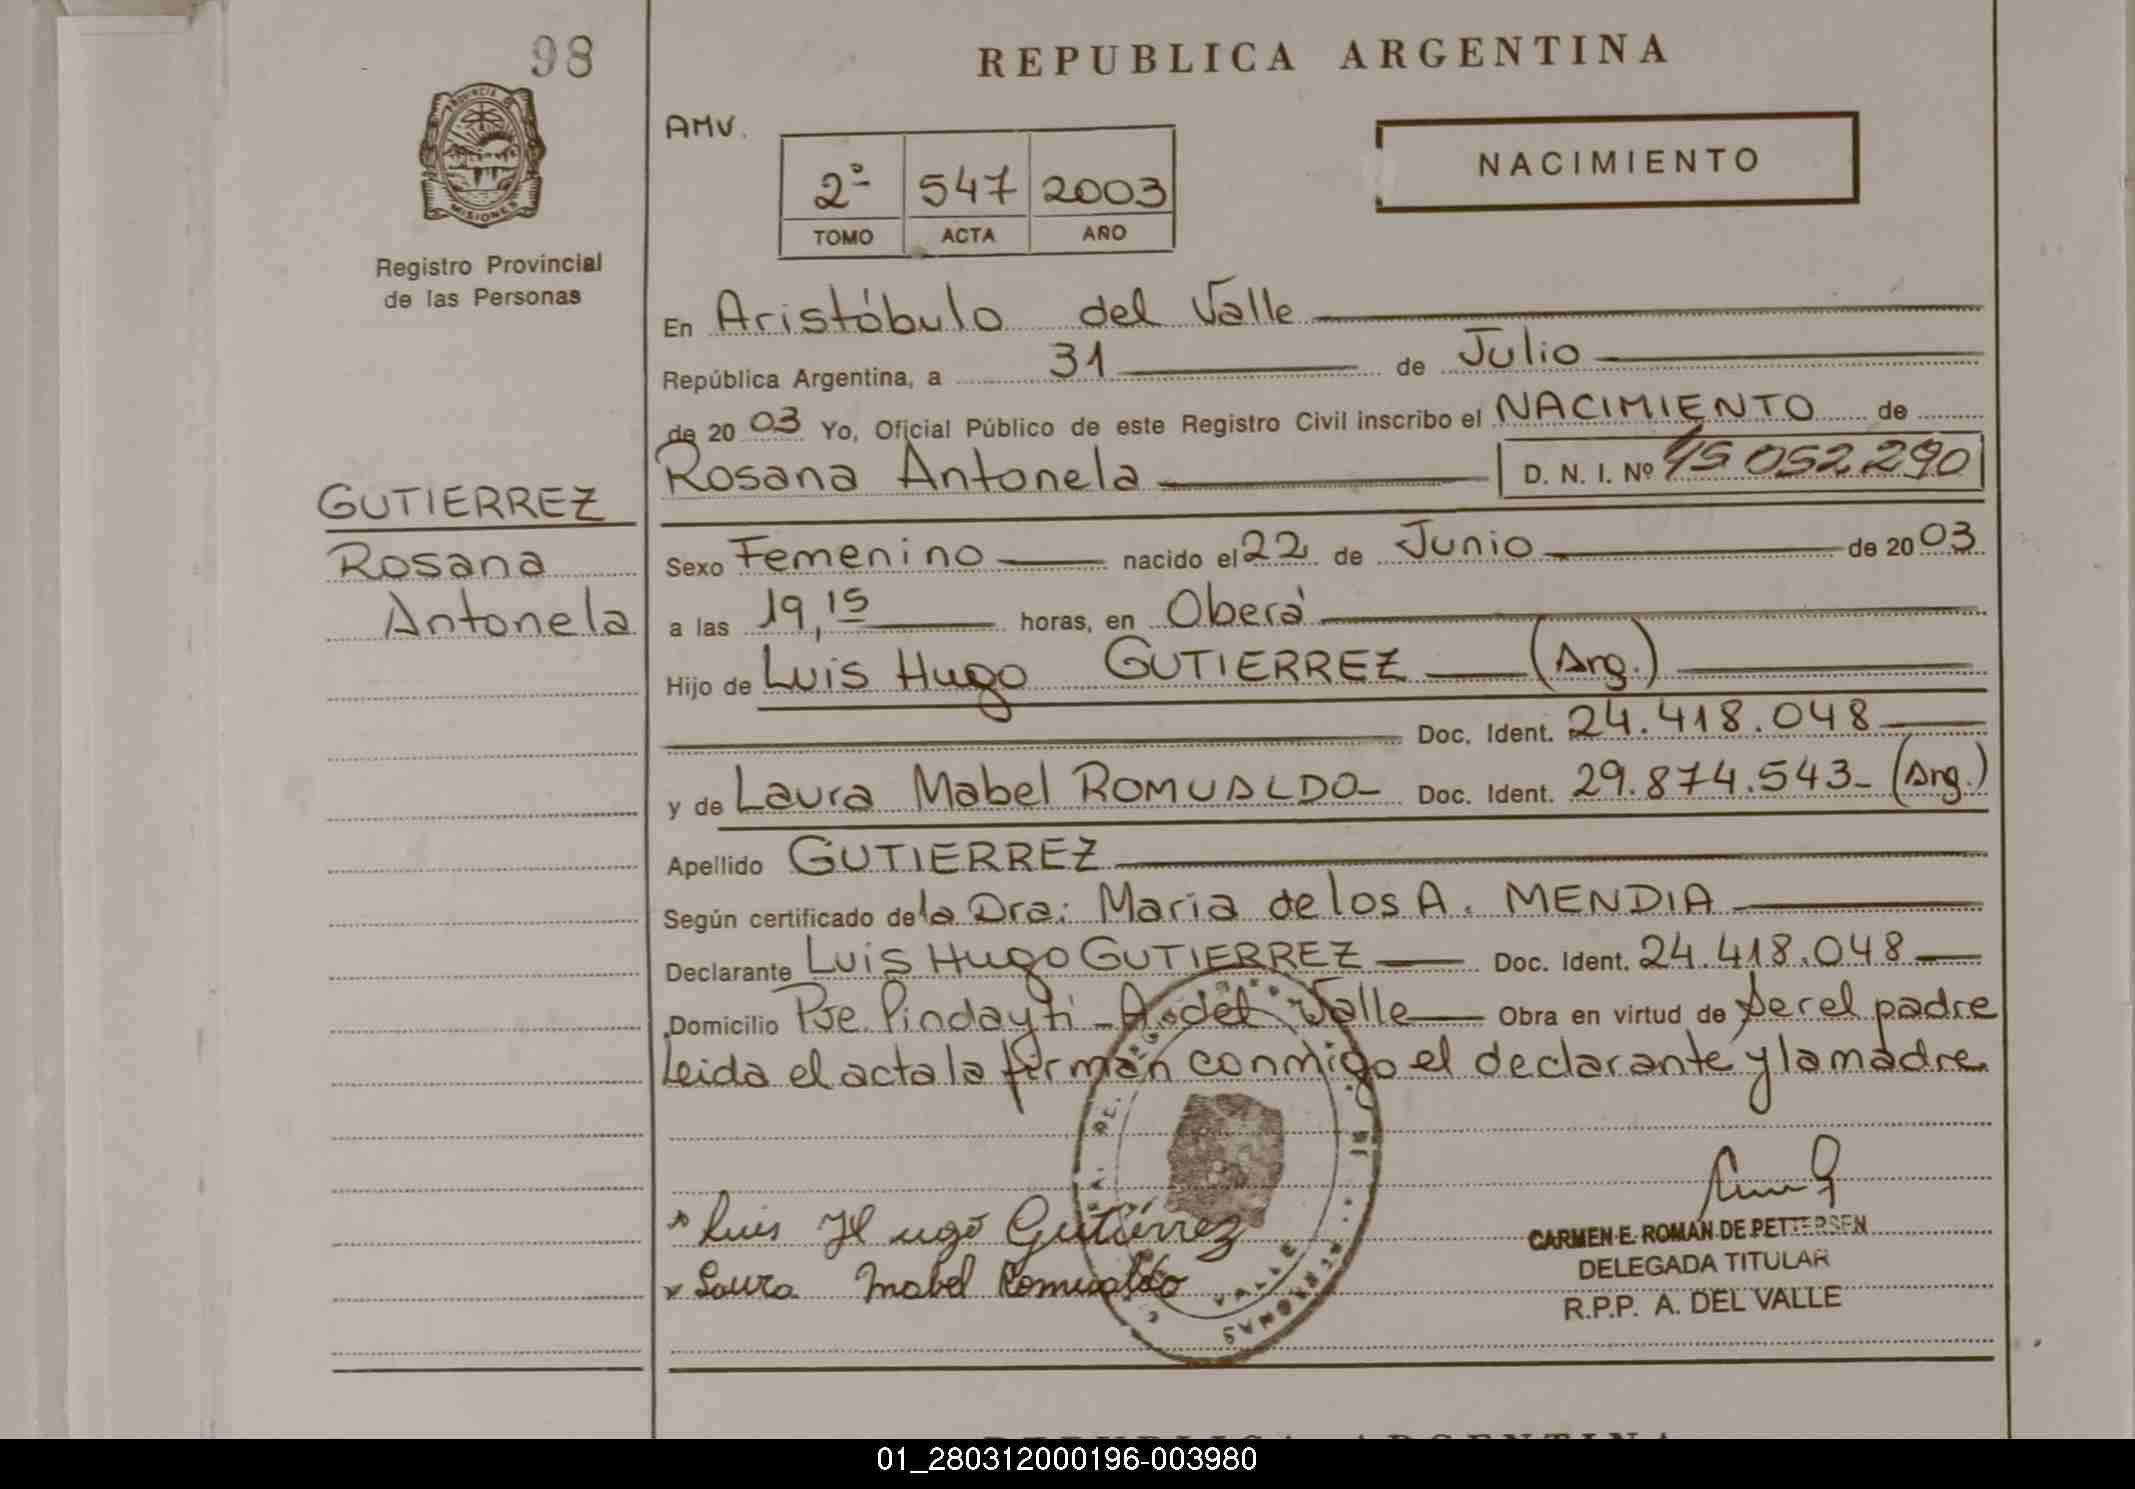 98
REPUBLICA ARGENTINA
PROVINCIA DE MISIONES
Registro Provincial
de las Personas
AMV.
2º 547 2003
TOMO ACTA AÑO
NACIMIENTO
En Aristóbulo del Valle
República Argentina, a 31 de Julio
de 20 03 Yo, Oficial Público de este Registro Civil inscribo el NACIMIENTO de
Rosana Antonela D. N. I. Nº 45 052 290
GUTIERREZ
Rosana
Antonela
Sexo Femenino nacido el 22 de Junio de 20 03
a las 19,15 horas, en Oberá
Hijo de Luis Hugo GUTIERREZ (Arg.)
Doc. Ident. 24.418.048
y de Laura Mabel ROMUALDO Doc. Ident. 29.874.543 (Arg.)
Apellido GUTIERREZ
Según certificado de la Dra: Maria de los A. MENDIA
Declarante Luis Hugo GUTIERREZ Doc. Ident. 24.418.048
Domicilio Pje. Pindayti - A. del Valle Obra en virtud de ser el padre
Leida el acta la firman conmigo el declarante y la madre.
x Luis Hugo Gutiérrez
x Laura Mabel Romualdo
VALLE
MISIONES
CARMEN E. ROMAN DE PETTERSEN
DELEGADA TITULAR
R.P.P. A. DEL VALLE
REPUBLICA ARGENTINA
01_280312000196-003980